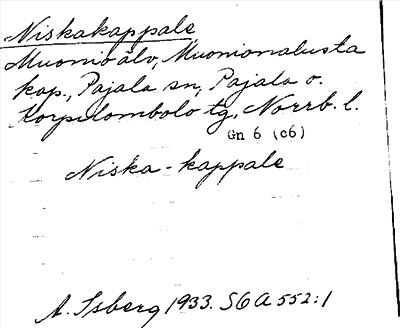 Niskakappale
Muonio älv, Muonionalusta
kap., Pajala sn, Pajala o.
Korpilombolo tg, Norrb. l.
Gn 6 (c6)
Niska-kappale
A. Isberg 1933. SGA 552:1